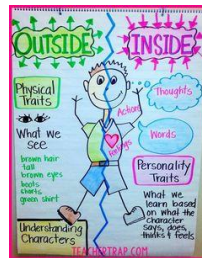 OUTSIDE
INSIDE
Physical
Traits
What we
see
brown hair
tall
brown eyes
boots
shorts
green shirt
Understanding
Characters
Actions
Feelings
Thoughts
Words
Personality
Traits
What we
learn based
on what the
character
says, does,
thinks & feels
TEACHERTRAP.COM